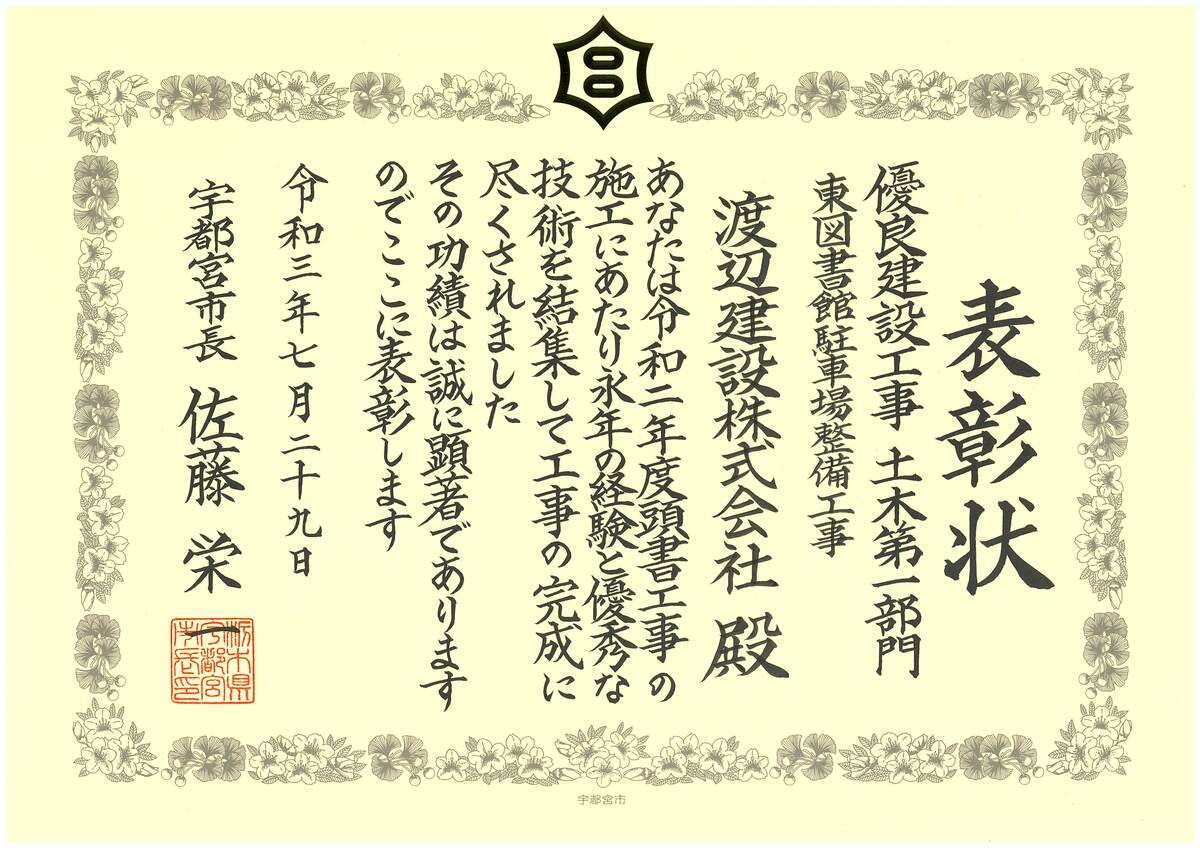 表彰状
優良建設工事 土木第一部門
東図書館駐車場整備工事
渡辺建設株式会社 殿
あなたは令和二年度頭書工事の
施工にあたり永年の経験と優秀な
技術を結集して工事の完成に
尽くされました
その功績は誠に顕著であります
のでここに表彰します
令和三年七月二十九日
宇都宮市長 佐藤 栄一
栃木県
宇都宮
市長印
宇都宮市